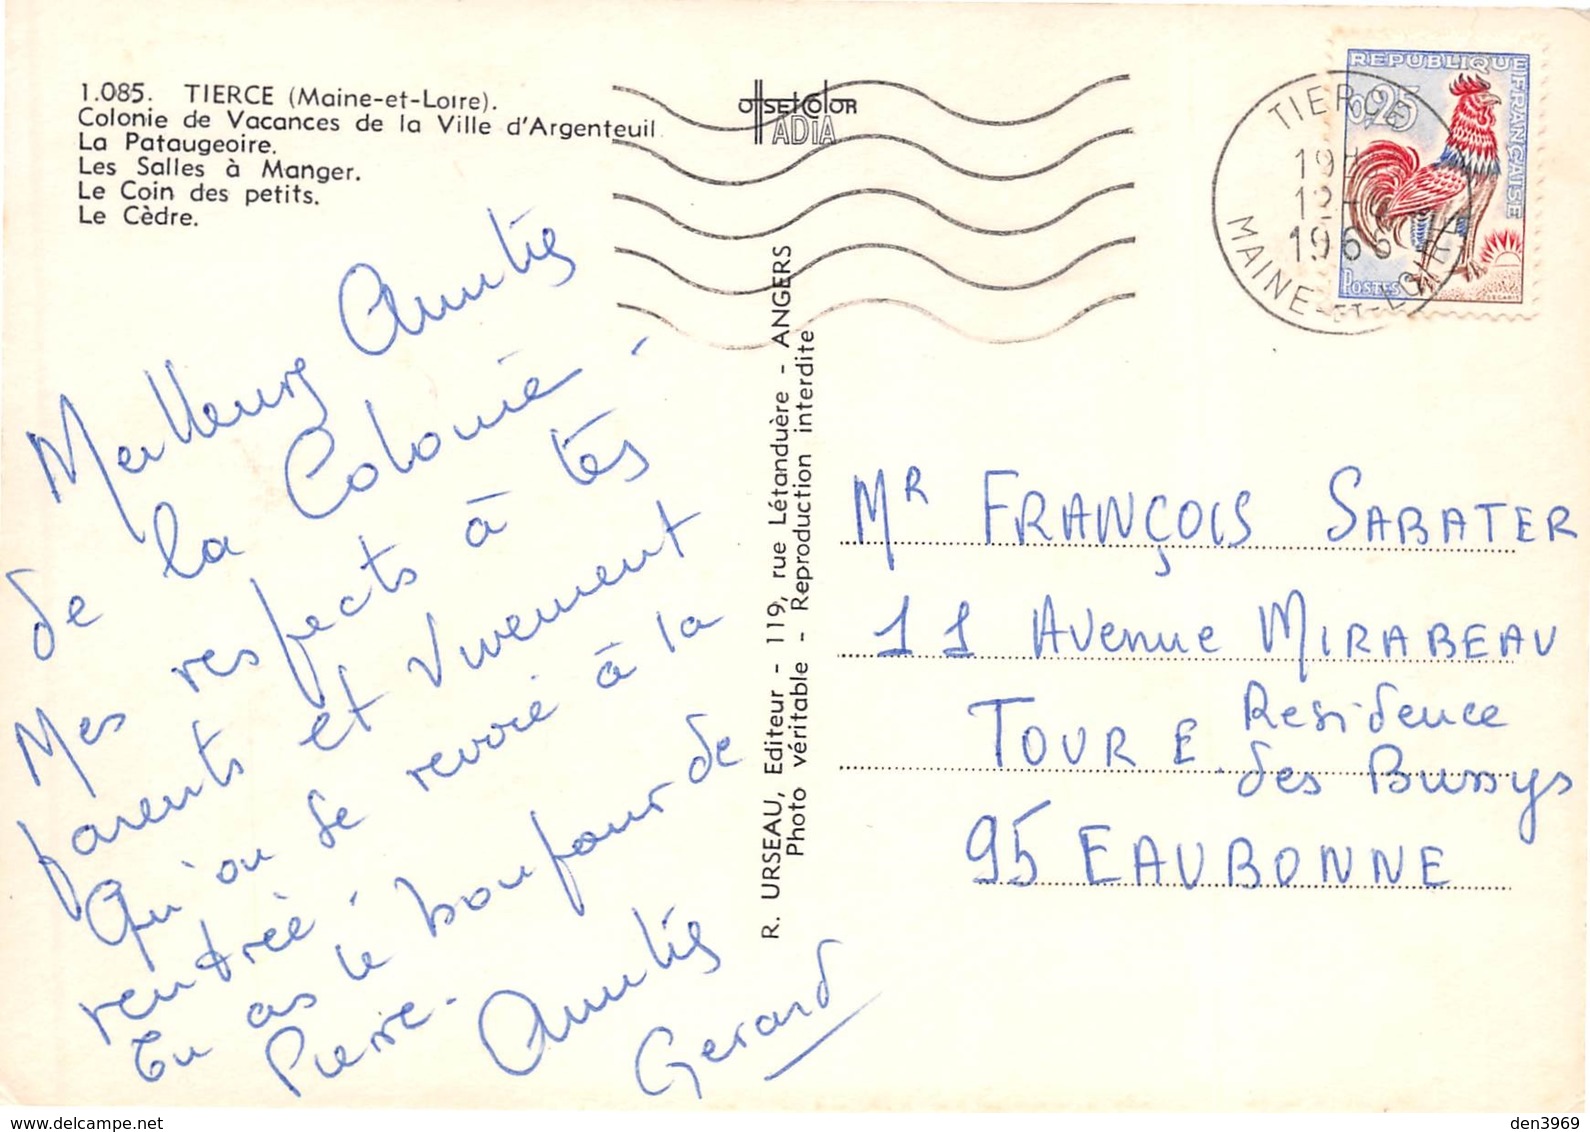 1.085. TIERCE (Maine-et-Loire).
Colonie de Vacances de la Ville d'Argenteuil
La Pataugeoire.
Les Salles à Manger.
Le Coin des petits.
Le Cèdre.
OFFSET COLOR
ADIA
REPUBLIQUE
FRANÇAISE
0,25
POSTES
DECARIS
TIERCE
19H
12-
1966
MAINE-ET-LOIRE
Meilleurs Amitiés
de la Colonie.
Mes respects à tes
parents et vivement
Qu'on se revoie à la
rentrée.
Tu as le bonjour de
Pierre.
Amitiés
Gerard
R. URSEAU, Editeur - 119, rue Létanduère - ANGERS
Photo véritable - Reproduction interdite
MR FRANÇOIS SABATER
11 Avenue MIRABEAU
TOUR E Residence
des Bussys
95 EAUBONNE
www.delcampe.net
den3969